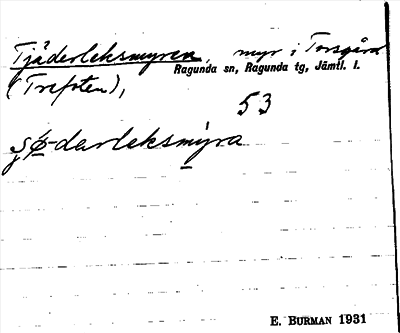 Tjäderleksmyren, myr i Torsgård
Ragunda sn, Ragunda tg, Jämtl. l.
(Trefoten),
53
-darleksmyra
E. BURMAN 1931